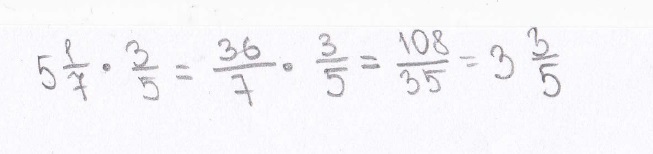 5 1/7 · 3/5 = 36/7 · 3/5 = 108/35 = 3 3/5